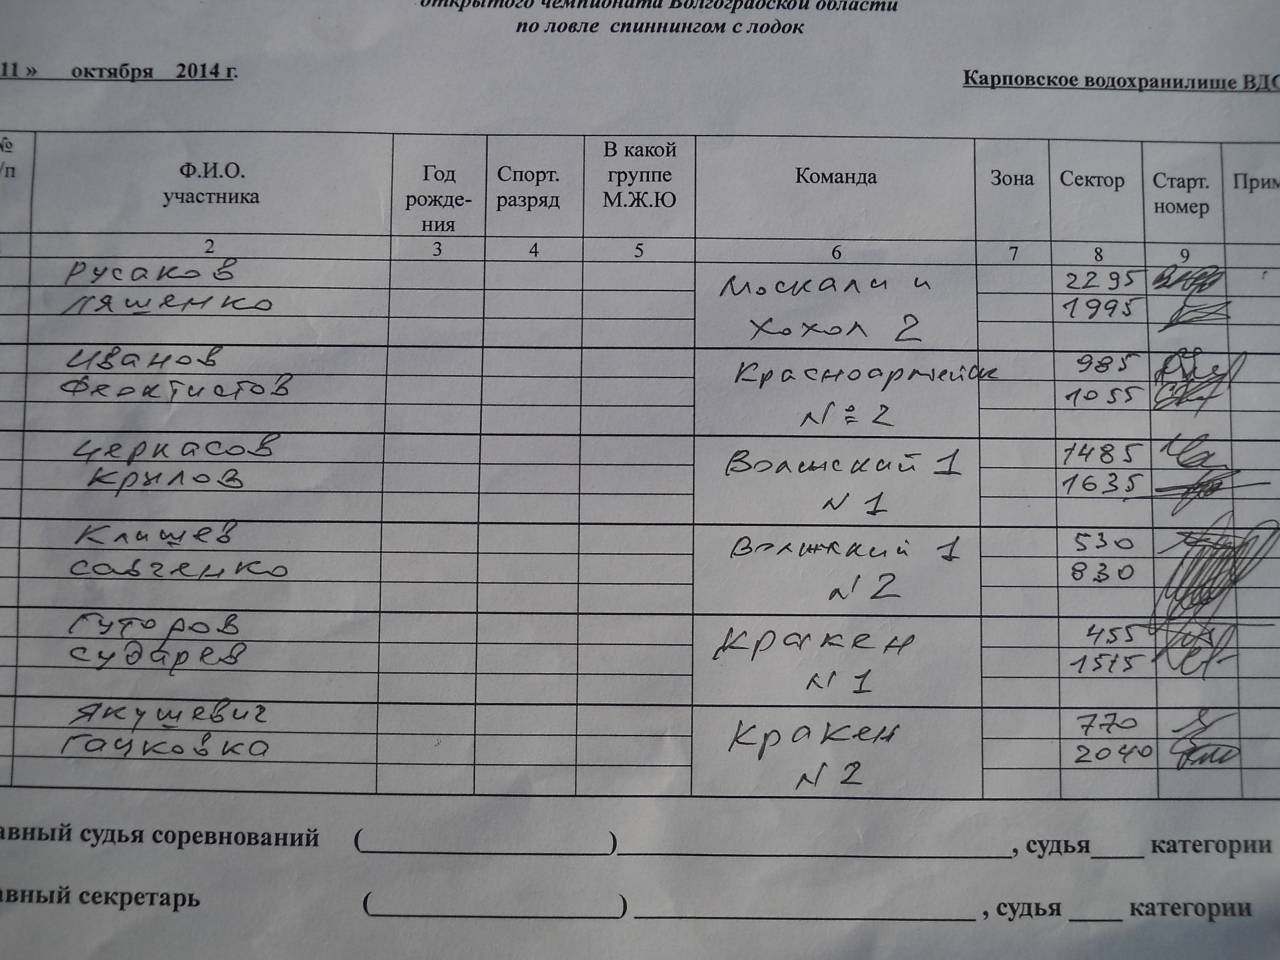 открытого чемпионата Волгоградской области
по ловле спиннингом с лодок
11 » октября 2014 г.
Карповское водохранилище
№
/п
Ф.И.О.
участника
Год
рожде-
ния
Спорт.
разряд
В какой
группе
М.Ж.Ю
Команда
Зона
Сектор
Старт.
номер
Прим
2 3 4 5 6 7 8 9
Русаков
Ляшенко
Москали и
хохол 2
2295
1995
Иванов
Феоктистов
Красноармейск
№ 2
985
1055
Черкасов
Крылов
Волжский 1
N 1
1485
1635
Клищев
Савченко
Волжский 1
N 2
530
830
Гуторов
Сударев
Кракен
N 1
455
1515
Якушевич
Гацковка
Кракен
N 2
770
2040
авный судья соревнований (____________)____________, судья____ категории
авный секретарь (____________) ____________ , судья ____ категории